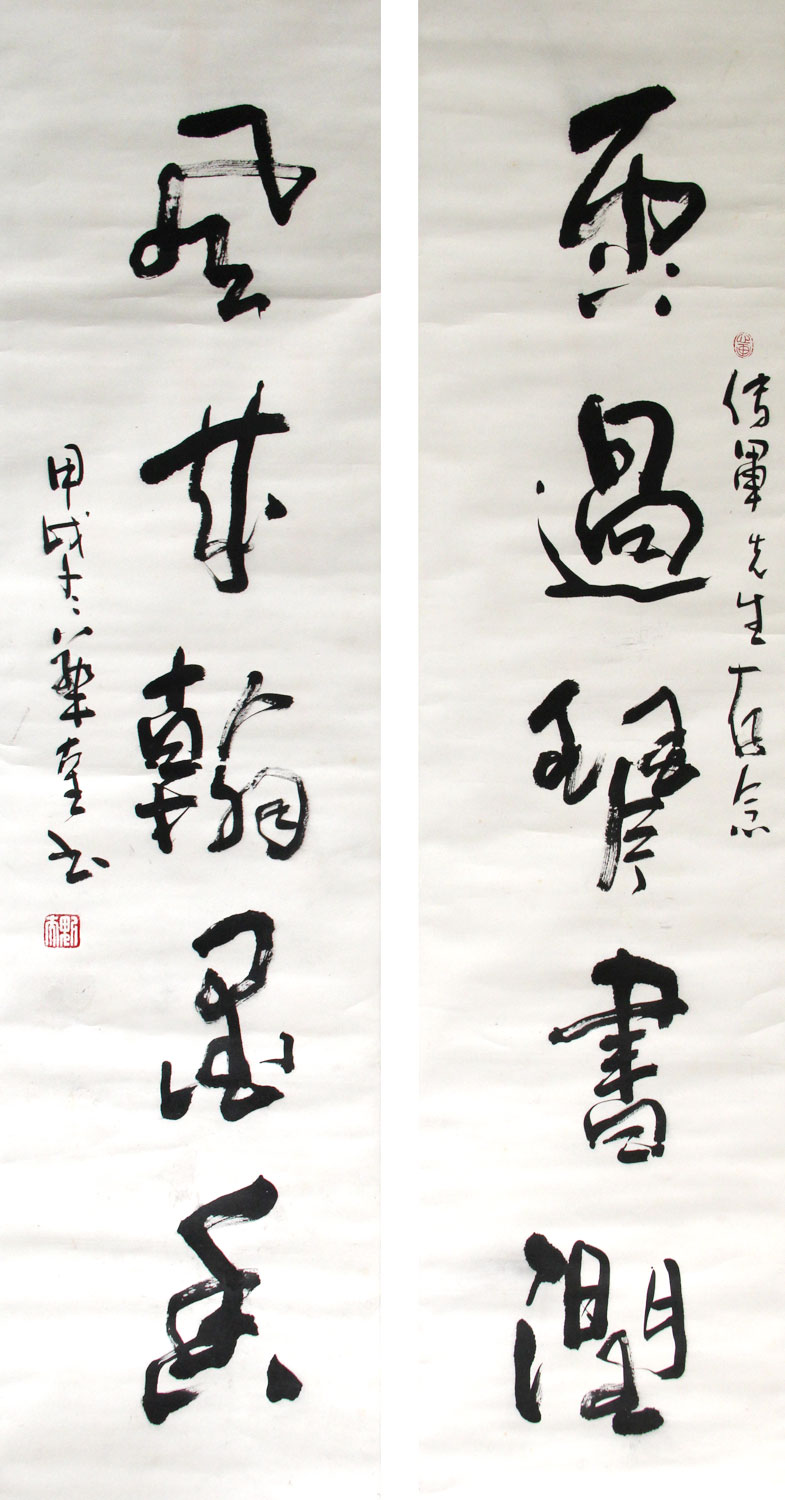 傳軍先生存念
雨過琴書潤
風來翰墨香
甲戌冬 華堂書